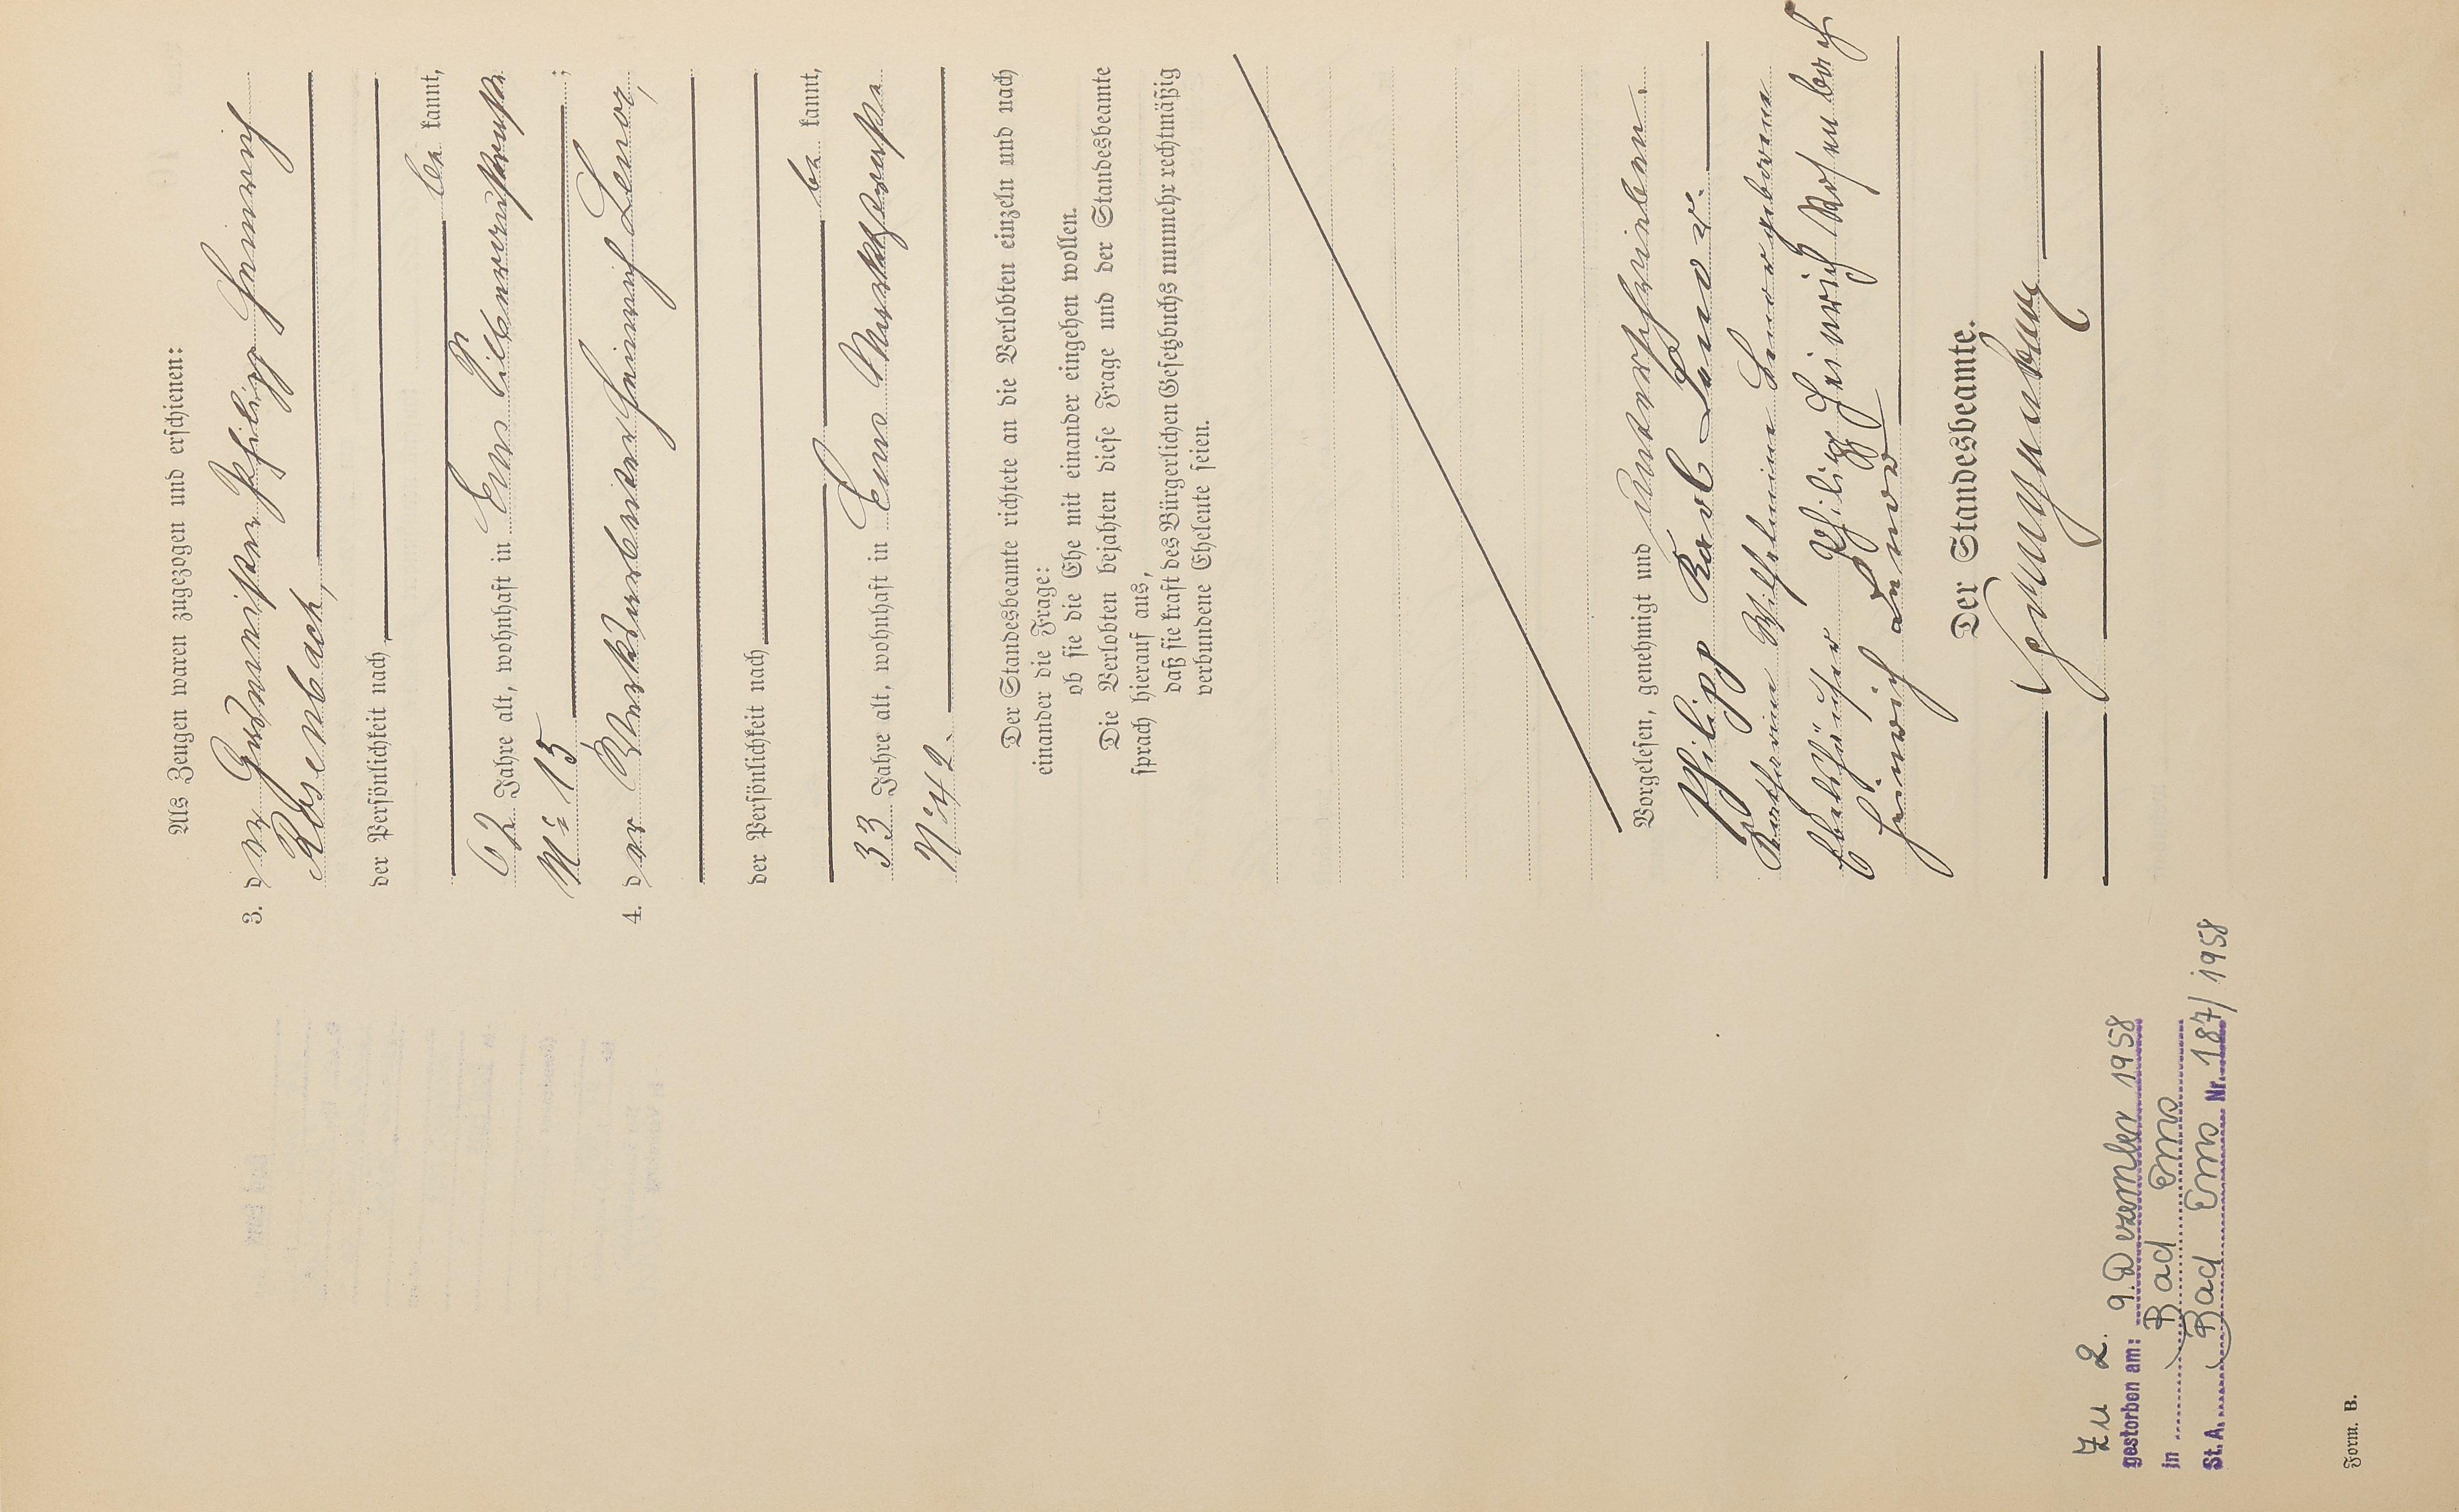 Als Zeugen waren zugezogen und erschienen:
3. der Grubensteiger Philipp Heinrich
Rosenbach,
der Persönlichkeit nach
be kannt,
62 Jahre alt, wohnhaft in Ems Silberaustraße
N° 15 ;
4. der Heinrich Lenor,
der Persönlichkeit nach
be kannt,
33 Jahre alt, wohnhaft in Ems
N° 42.
Der Standesbeamte richtete an die Verlobten einzeln und nach
einander die Frage:
ob sie die Ehe mit einander eingehen wollen.
Die Verlobten bejahten diese Frage und der Standesbeamte
sprach hierauf aus,
daß sie kraft des Bürgerlichen Gesetzbuchs nunmehr rechtmäßig
verbundene Eheleute seien.
Vorgelesen, genehmigt und unterschrieben.
Philipp Karl Lenor.
Katharine Wilhelmine Lenor geborene
Ebelshäuser Philipp Heinrich Rosenbach
Heinrich Lenor
Der Standesbeamte.
Zu 2.
gestorben am: 9. Dezember 1958
in Bad Ems
St. A. Bad Ems Nr. 187/1958
Form. B.